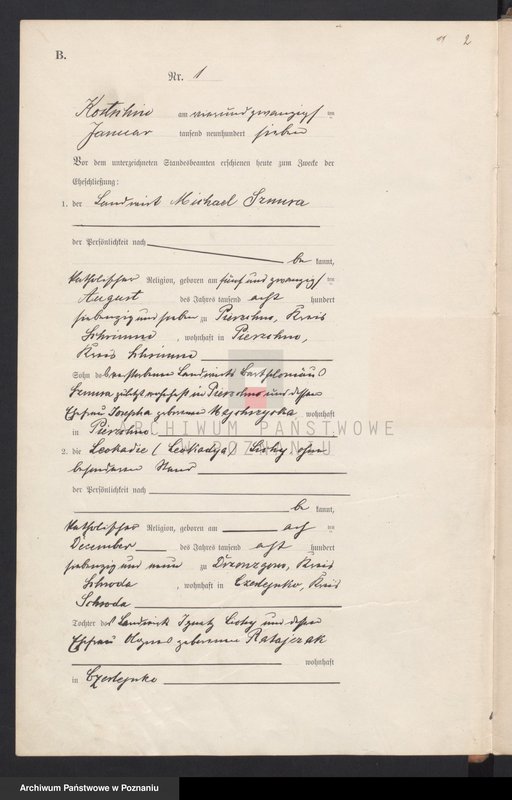 2
B.
Nr. 1
Kostschin am vierundzwanzigs ten
Januar tausend neunhundert sieben
Vor dem unterzeichneten Standesbeamten erschienen heute zum Zwecke der
Eheschließung:
1. der Landwirt Michael Szmura
der Persönlichkeit nach
be kannt,
katholischer Religion, geboren am fünfundzwanzigs ten
August des Jahres tausend acht hundert
siebenzig und sieben zu Pierzchno, Kreis
Schrimm, wohnhaft in Pierzchno,
Kreis Schrimm
Sohn des verstorbenen Landwirts Bartholomäus
Szmura zuletzt wohnhaft in Pierzchno und dessen
Ehefrau Josepha geborenen wohnhaft
in Pierzchno
ARCHIWUM PAŃSTWOWE
W POZNANIU
2. die Leokadie (Leokadya) Cichy ohne
besonderen Stand
der Persönlichkeit nach
be kannt,
katholischer Religion, geboren am ach ten
Dezember des Jahres tausend acht hundert
siebenzig und neun zu Kreis
Schroda, wohnhaft in Czerlejnko, Kreis
Schroda
Tochter des Landwirts Ignatz Cichy und dessen
Ehefrau Agnes geborenen Ratajczak
wohnhaft
in Czerlejnko
Archiwum Państwowe w Poznaniu